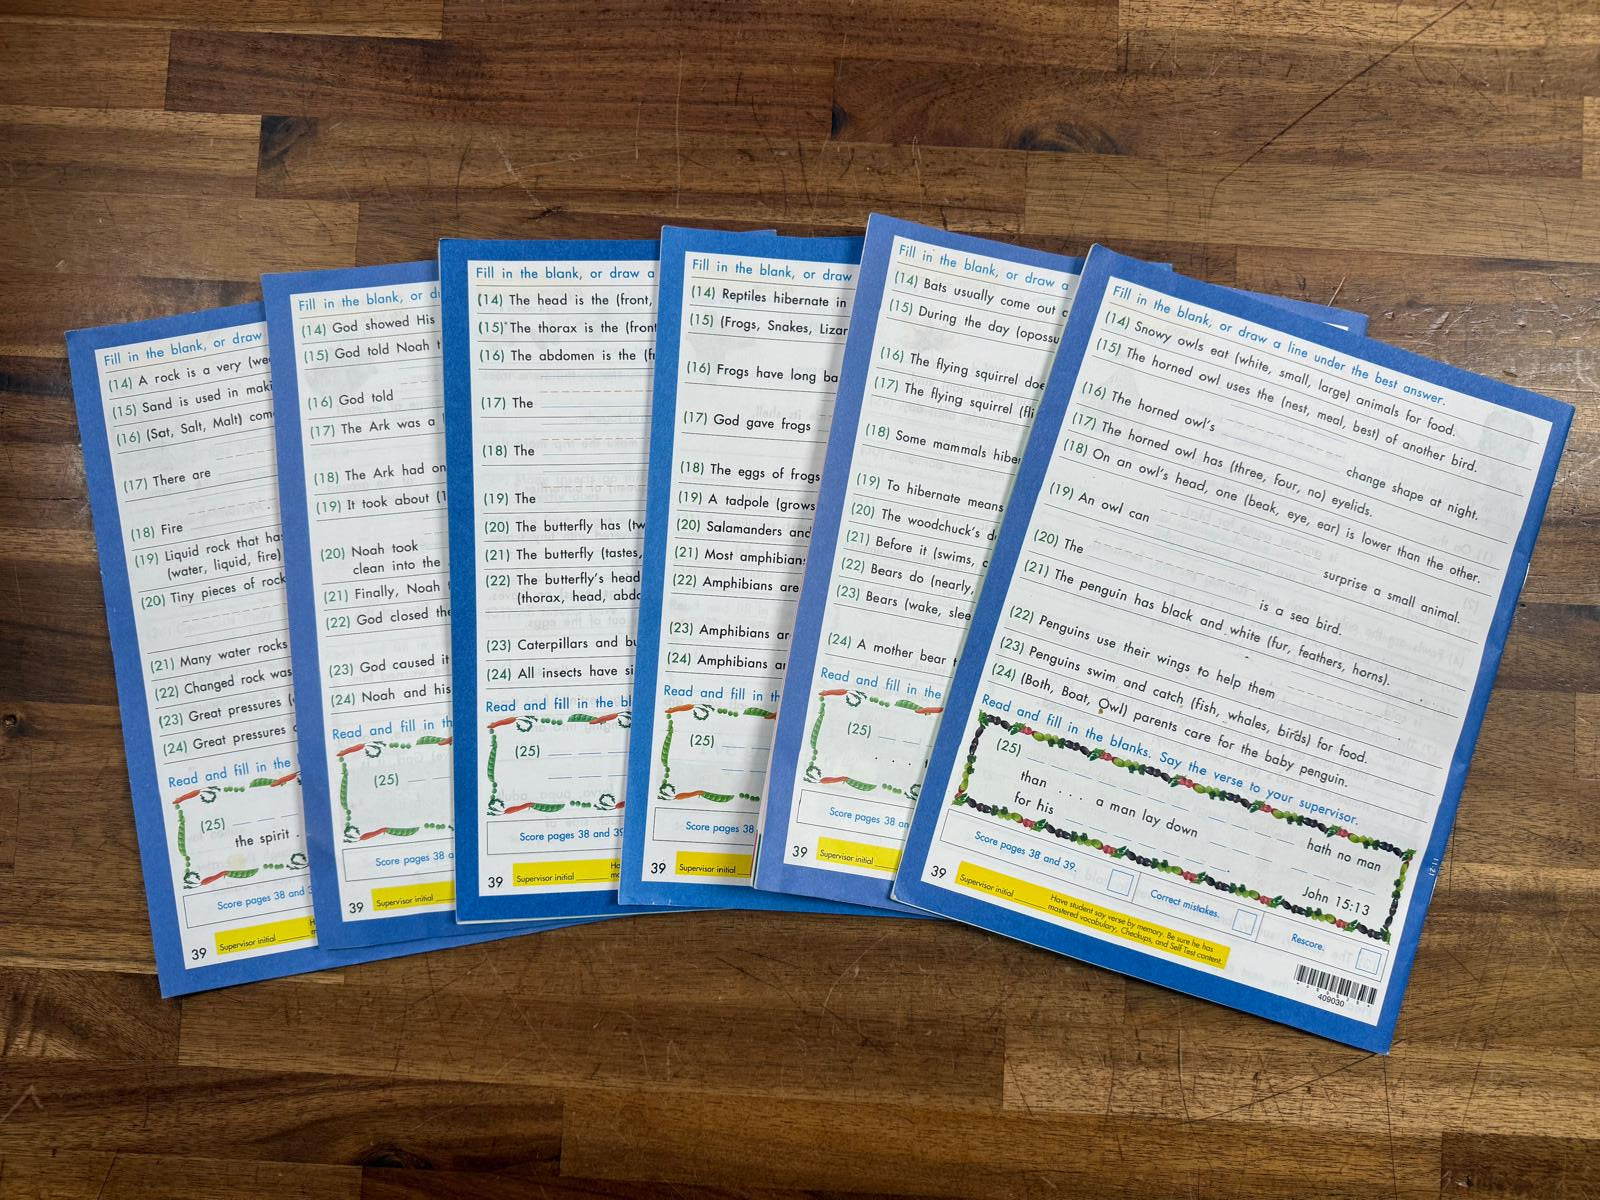 Fill in the blank, or draw
(14) A rock is a very
(15) Sand is used in maki
(16) (Sat, Salt, Malt) com
(17) There are
(18) Fire
(19) Liquid rock that has
(water, liquid, fire)
(20) Tiny pieces of rock
(21) Many water rocks
(22) Changed rock was
(23) Great pressures
(24) Great pressures
Read and fill in the
(25)
the spirit .
Score pages 38 and 3
39
Supervisor initial
Fill in the blank, or d
(14) God showed His
(15) God told Noah t
(16) God told
(17) The Ark was a
(18) The Ark had on
(19) It took about (1
(20) Noah took
clean into the
(21) Finally, Noah
(22) God closed the
(23) God caused it
(24) Noah and his
Read and fill in th
(25)
Score pages 38 a
39
Supervisor initial
Fill in the blank, or draw a
(14) The head is the (front,
(15) The thorax is the (front
(16) The abdomen is the (fr
(17) The
(18) The
(19) The
(20) The butterfly has (tw
(21) The butterfly (tastes,
(22) The butterfly's head
(thorax, head, abdo
(23) Caterpillars and bu
(24) All insects have si
Read and fill in the bl
(25)
Score pages 38 and 39
39
Supervisor initial
Fill in the blank, or draw
(14) Reptiles hibernate in
(15) (Frogs, Snakes, Lizar
(16) Frogs have long ba
(17) God gave frogs
(18) The eggs of frogs
(19) A tadpole (grows
(20) Salamanders and
(21) Most amphibian
(22) Amphibians are
(23) Amphibians ar
(24) Amphibians a
Read and fill in th
(25)
Score pages 38
39
Supervisor initial
Fill in the blank, or draw a
(14) Bats usually come out
(15) During the day (opossu
(16) The flying squirrel doe
(17) The flying squirrel (fli
(18) Some mammals hiber
(19) To hibernate means
(20) The woodchuck's d
(21) Before it (swims, c
(22) Bears do (nearly,
(23) Bears (wake, slee
(24) A mother bear t
Read and fill in the
(25)
Score pages 38 a
39
Supervisor initial
Fill in the blank, or draw a line under the best answer.
(14) Snowy owls eat (white, small, large) animals for food.
(15) The horned owl uses the (nest, meal, best) of another bird.
(16) The horned owl's change shape at night.
(17) The horned owl has (three, four, no) eyelids.
(18) On an owl's head, one (beak, eye, ear) is lower than the other.
(19) An owl can surprise a small animal.
(20) The is a sea bird.
(21) The penguin has black and white (fur, feathers, horns).
(22) Penguins use their wings to help them
(23) Penguins swim and catch (fish, whales, birds) for food.
(24) (Both, Boat, Owl) parents care for the baby penguin.
Read and fill in the blanks. Say the verse to your supervisor.
(25) hath no man
than . . . a man lay down
for his
John 15:13
Score pages 38 and 39.
Correct mistakes.
Rescore.
39
Supervisor initial
Have student say verse by memory. Be sure he has
mastered vocabulary, Checkups, and Self Test content.
409030